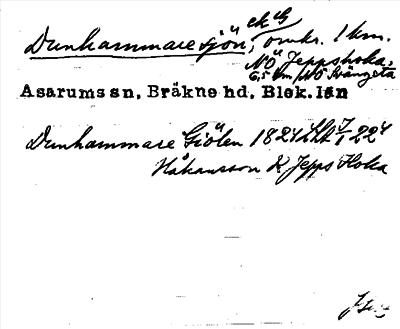 ek G
Dunhammaresjön, omkr. 1 km.
NÖ Jeppshoka,
6,5 km NÖ Krångeta
Asarums sn, Bräkne hd. Blek. län
Dunhammare Giölen 1824 Lht 7/1 224
Håkansson K Jepps Hoka